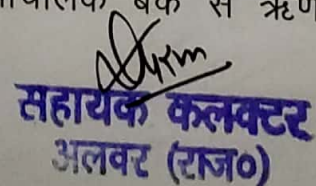 बैंक से ऋण
सहायक कलक्टर
अलवर (राज०)